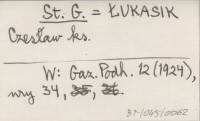 St. G. = ŁUKASIK
Czesław ks.
W: Gaz. Podh. 12 (1924),
nry 34, 35, 36.
BJ-1045/0062